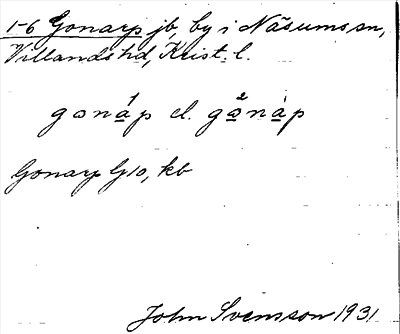 1-6 Gonarp jb, by i Näsums sn,
Villands hd, Krist. l.
gonáp el. gònàp
Gonarp G10, kb
John Svensson 1931